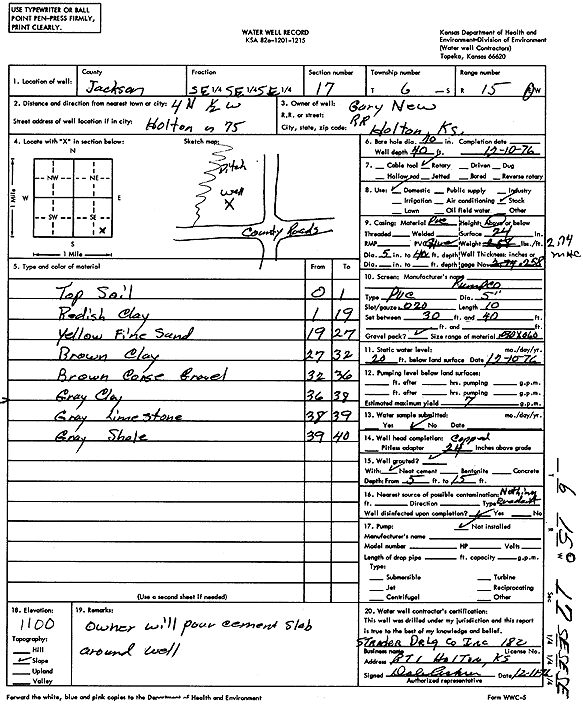 USE TYPEWRITER OR BALL
POINT PEN-PRESS FIRMLY,
PRINT CLEARLY.
WATER WELL RECORD
KSA 82a-1201-1215
Kansas Department of Health and
Environment-Division of Environment
(Water well Contractors)
Topeka, Kansas 66620
1. Location of well: County Jackson Fraction SE 1/4 SE 1/4 SE 1/4 Section number 17 Township number T 6 S Range number R 15 E/W
2. Distance and direction from nearest town or city: 4 N 1/2 W
Street address of well location if in city: Holton on 75
3. Owner of well: Gary New
R.R. or street: RR
City, state, zip code: Holton, Ks.
4. Locate with "X" in section below:
N
NW NE
W E
SW SE
X
S
1 Mile
1 Mile
Sketch map:
Ditch
well
X
County Roads
5. Type and color of material From To
Top Soil 0 1
Redish Clay 1 19
Yellow Fine Sand 19 27
Brown Clay 27 32
Brown Corse Gravel 32 36
Gray Clay 36 38
Gray Limestone 38 39
Gray Shale 39 40
(Use a second sheet if needed)
6. Bore hole dia. 10 in. Completion date
Well depth 40 ft. 12-10-76
7. Cable tool ✓ Rotary Driven Dug
Hollow rod Jetted Bored Reverse rotary
8. Use: ✓ Domestic Public supply Industry
Irrigation Air conditioning ✓ Stock
Lawn Oil field water Other
9. Casing: Material PVC Height: Above or below
Threaded Welded Surface 24 in.
RMP PVC Weight 2.58 lbs./ft. 2.74
Dia. 5 in. to 40 ft. depth Wall Thickness: inches or MHC
Dia. in. to ft. depth gage No. .258
10. Screen: Manufacturer's name
Kumpco
Type PVC Dia. 5"
Slot/gauze .020 Length 10
Set between 30 ft. and 40 ft.
ft. and ft.
Gravel pack? ✓ Size range of material
11. Static water level: mo./day/yr.
20 ft. below land surface Date 12-10-76
12. Pumping level below land surfaces:
ft. after hrs. pumping g.p.m.
ft. after hrs. pumping g.p.m.
Estimated maximum yield 7 g.p.m.
13. Water sample submitted: mo./day/yr.
Yes ✓ No Date
14. Well head completion: Capped
Pitless adapter 24 Inches above grade
15. Well grouted? ✓
With: ✓ Neat cement Bentonite Concrete
Depth: From 5 ft. to 15 ft.
16. Nearest source of possible contamination: Nothing
ft. Direction Type
Well disinfected upon completion? ✓ Yes No
17. Pump: ✓ Not installed
Manufacturer's name
Model number HP Volts
Length of drop pipe ft. capacity g.p.m.
Type:
Submersible Turbine
Jet Reciprocating
Centrifugal Other
18. Elevation:
1100
Topography:
Hill
✓ Slope
Upland
Valley
19. Remarks:
Owner will pour cement slab
around well
20. Water well contractor's certification:
This well was drilled under my jurisdiction and this report
is true to the best of my knowledge and belief.
Strader Drlg Co Inc 182
Business name License No.
Address RT1 Holton, KS
Signed Date 12-11-76
Authorized representative
Forward the white, blue and pink copies to the Department of Health and Environment
Form WWC-5
T 6 R 15 Sec 17 SE SE SE
1/4 1/4 1/4